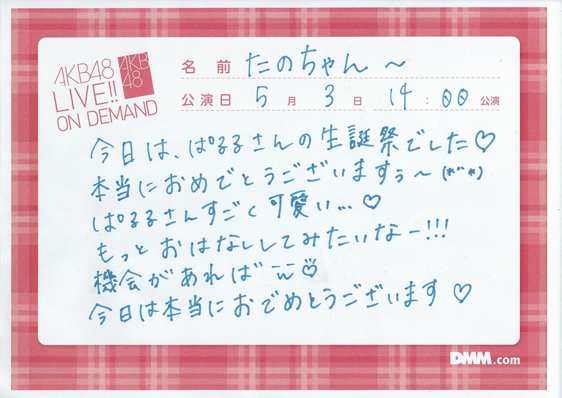 AKB48
LIVE!!
ON DEMAND
AKB
48
名前 たのちゃん 〜
公演日 5月 3日 14:00 公演
今日は、ぱるるさんの生誕祭でした♡
本当におめでとうございますぅ〜(*´`*)
ぱるるさんすごく可愛い...♡
もっとおはなししてみたいなー!!!
機会があれば
今日は本当におでめとうございます♡
DMM.com